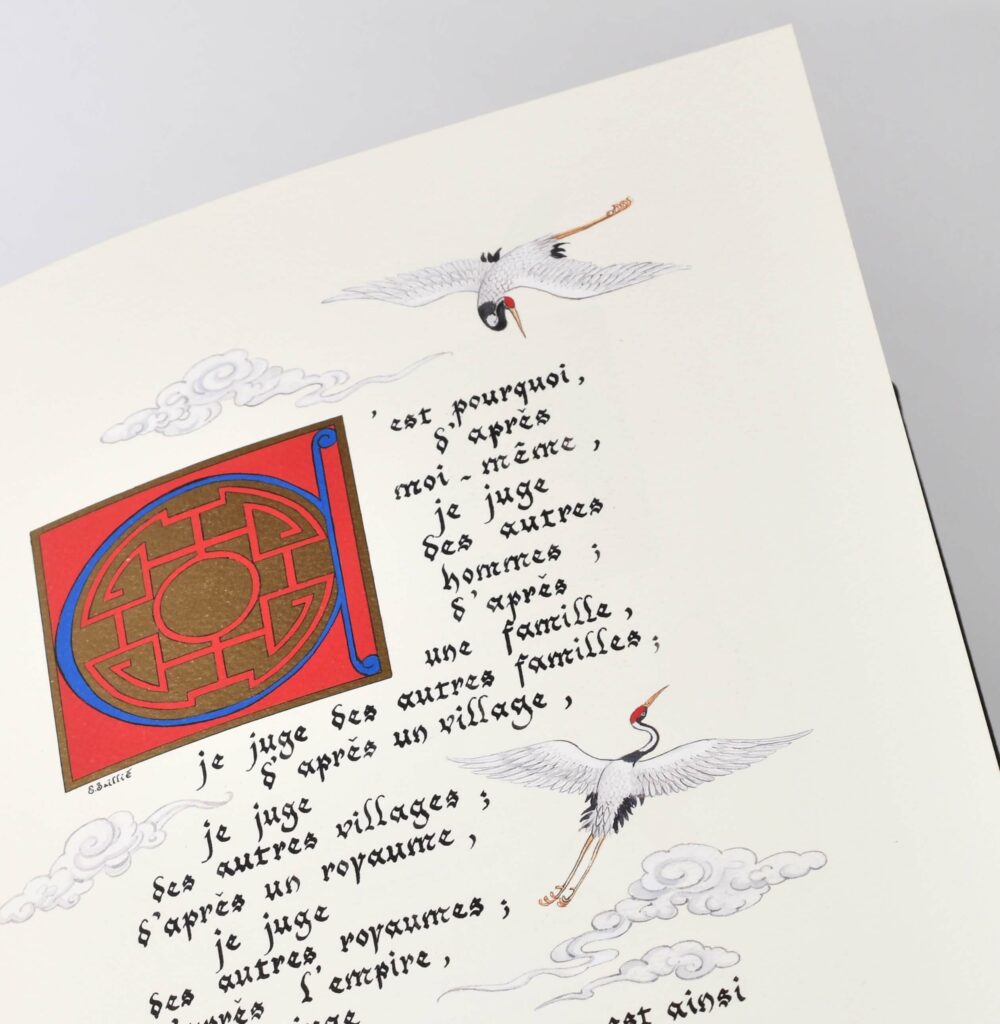 C'est pourquoi,
d'après
moi-même,
je juge
des autres
hommes ;
d'après
une famille,
je juge des autres familles;
d'après un village,
je juge
des autres villages ;
d'après un royaume,
je juge
des autres royaumes ;
d'après l'empire,
juge
est ainsi